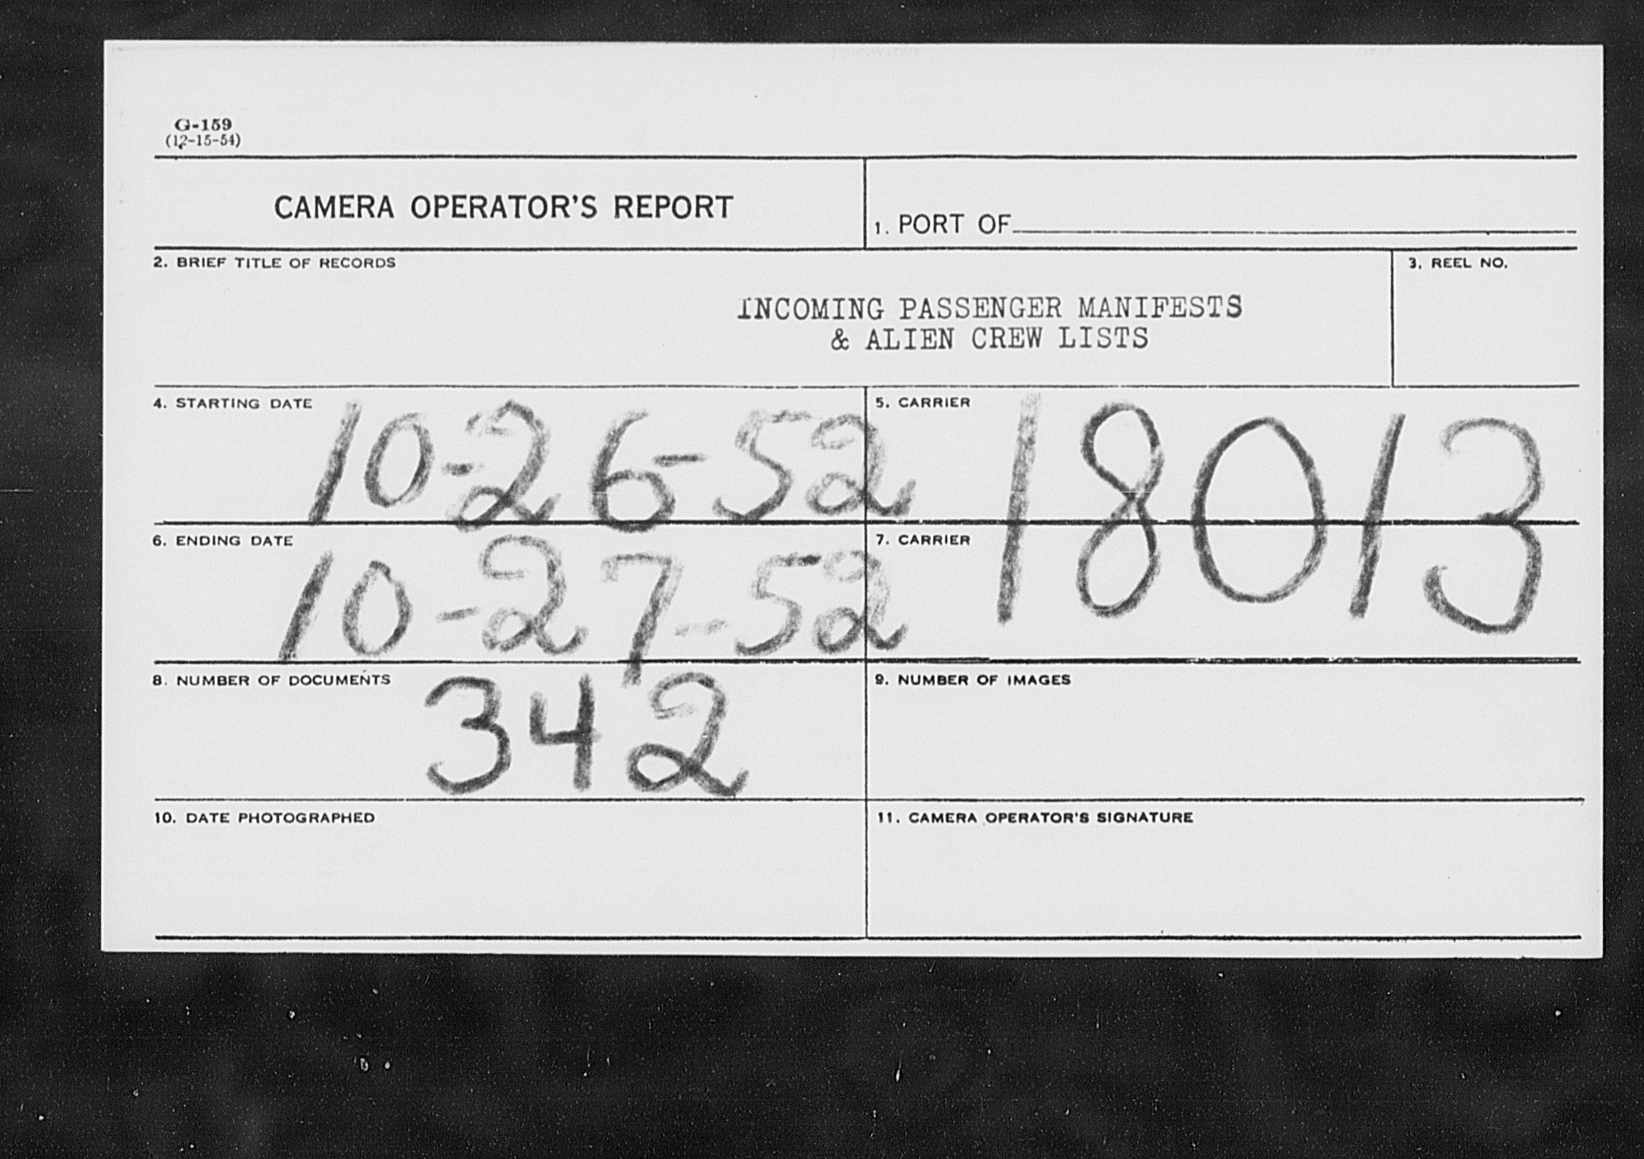 G-159
(12-15-54)
CAMERA OPERATOR'S REPORT
1. PORT OF
2. BRIEF TITLE OF RECORDS
INCOMING PASSENGER MANIFESTS
& ALIEN CREW LISTS
3. REEL NO.
4. STARTING DATE
10-26-52
5. CARRIER
18013
6. ENDING DATE
10-27-52
7. CARRIER
8. NUMBER OF DOCUMENTS
342
9. NUMBER OF IMAGES
10. DATE PHOTOGRAPHED
11. CAMERA OPERATOR'S SIGNATURE